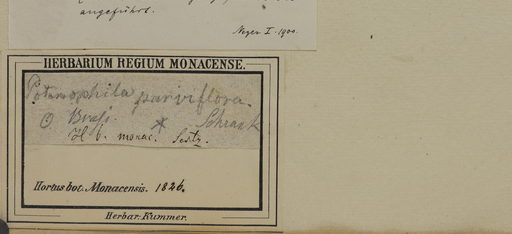 angeführt.
Neger I. 1900.
HERBARIUM REGIUM MONACENSE.
Potamophila parviflora.
O. Bras. * Schrank
H. b. monac. Seitz.
Hortus bot. Monacensis. 1826.
Herbar. Kummer.